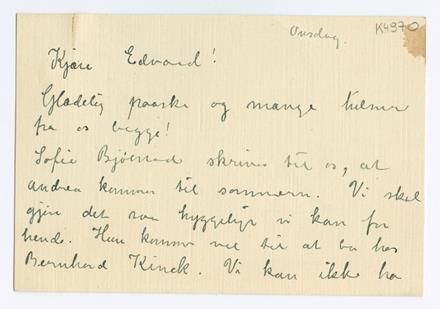 Onsdag.
K4970
Kjære Edvard!
Glædelig paaske og mange hilsner
fra os begge!
Sofie skriver til os, at
Andrea kommer til sommern. Vi skal
gjøre det saa hyggeligt vi kan for
hende. Hun kommer vel til at bo hos
Bernhard Kinck. Vi kan ikke ha